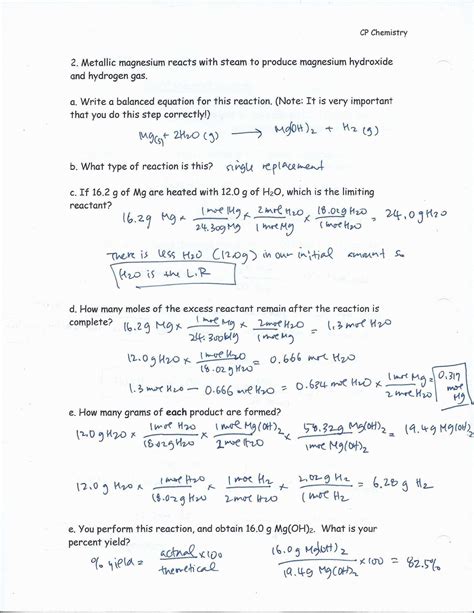 CP Chemistry
2. Metallic magnesium reacts with steam to produce magnesium hydroxide
and hydrogen gas.
a. Write a balanced equation for this reaction. (Note: It is very important
that you do this step correctly!)
Mg(s) + 2H₂O (g) → Mg(OH)₂ + H₂ (g)
b. What type of reaction is this? single replacement
c. If 16.2 g of Mg are heated with 12.0 g of H₂O, which is the limiting
reactant?
16.2g Mg × 1 mol Mg / 24.30g Mg × 2 mol H₂O / 1 mol Mg × 18.02g H₂O / 1 mol H₂O = 24.0g H₂O
There is less H₂O (12.0g) in our initial amount so
H₂O is the L.R
d. How many moles of the excess reactant remain after the reaction is
complete? 16.2g Mg × 1 mol Mg / 24.300g Mg × 2 mol H₂O / 1 mol Mg = 1.3 mol H₂O
12.0g H₂O × 1 mol H₂O / 18.02g H₂O = 0.666 mol H₂O
1.3 mol H₂O - 0.666 mol H₂O = 0.634 mol H₂O × 1 mol Mg / 2 mol H₂O = 0.317 mol Mg
e. How many grams of each product are formed?
12.0g H₂O × 1 mol H₂O / 18.02g H₂O × 1 mol Mg(OH)₂ / 2 mol H₂O × 58.32g Mg(OH)₂ / 1 mol Mg(OH)₂ = 19.4g Mg(OH)₂
12.0g H₂O × 1 mol H₂O / 18.02g H₂O × 1 mol H₂ / 2 mol H₂O × 2.02g H₂ / 1 mol H₂ = 6.28g H₂
e. You perform this reaction, and obtain 16.0 g Mg(OH)₂. What is your
percent yield?
% yield = actual / theoretical ×100
16.0g Mg(OH)₂ / 19.4g Mg(OH)₂ ×100 = 82.5%